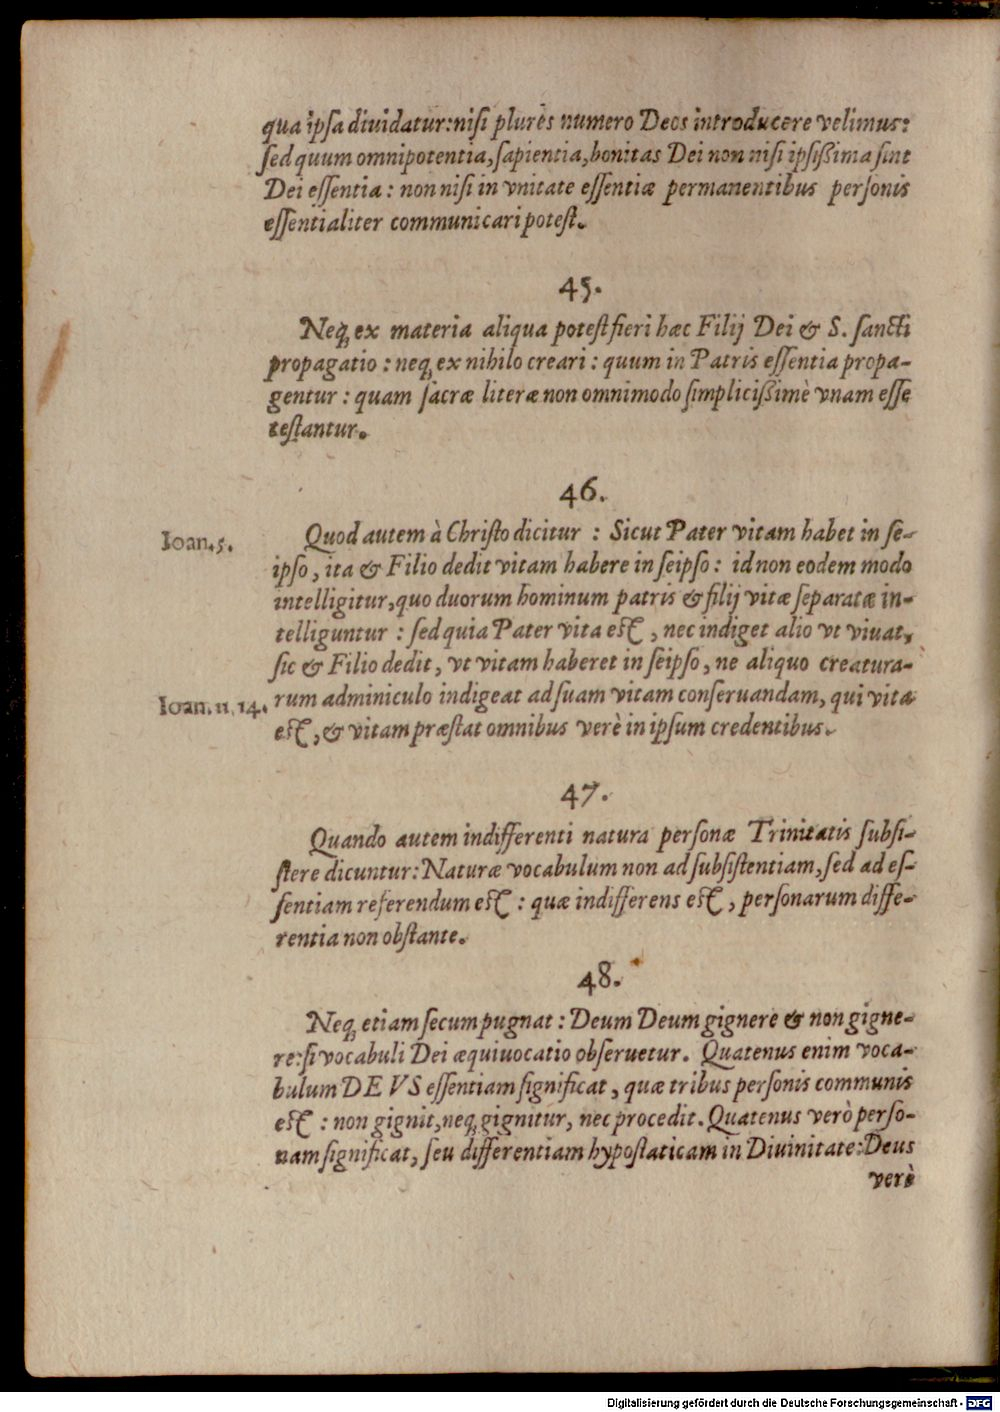 qua ipsa diuidatur: nisi plures numero Deos introducere velimus:
sed quum omnipotentia, sapientia, bonitas Dei non nisi ipsißima sint
Dei essentia: non nisi in vnitate essentiæ permanentibus personis
essentialiter communicari potest.
45.
Neq; ex materia aliqua potest fieri hæc Filij Dei & S. sancti
propagatio: neq; ex nihilo creari: quum in Patris essentia propa-
gentur: quam sacræ literæ non omnimodo simplicißimè vnam esse
testantur.
46.
Ioan. 5.
Quod autem à Christo dicitur: Sicut Pater vitam habet in se-
ipso, ita & Filio dedit vitam habere in seipso: id non eodem modo
intelligitur, quo duorum hominum patris & filij vitæ separatæ in-
telliguntur: sed quia Pater vita est, nec indiget alio vt viuat,
sic & Filio dedit, vt vitam haberet in seipso, ne aliquo creatura-
Ioan. 11. 14.
rum adminiculo indigeat ad suam vitam conseruandam, qui vita
est, & vitam præstat omnibus verè in ipsum credentibus.
47.
Quando autem indifferenti natura personæ Trinitatis subsi-
stere dicuntur: Naturæ vocabulum non ad subsistentiam, sed ad es-
sentiam referendum est: quæ indifferens est, personarum diffe-
rentia non obstante.
48.
Neq; etiam secum pugnat: Deum Deum gignere & non gigne-
re: si vocabuli Dei æquiuocatio obseruetur. Quatenus enim voca-
bulum DEVS essentiam significat, quæ tribus personis communis
est: non gignit, neq; gignitur, nec procedit. Quatenus verò perso-
nam significat, seu differentiam hypostaticam in Diuinitate: Deus
verè
Digitalisierung gefördert durch die Deutsche Forschungsgemeinschaft - DFG